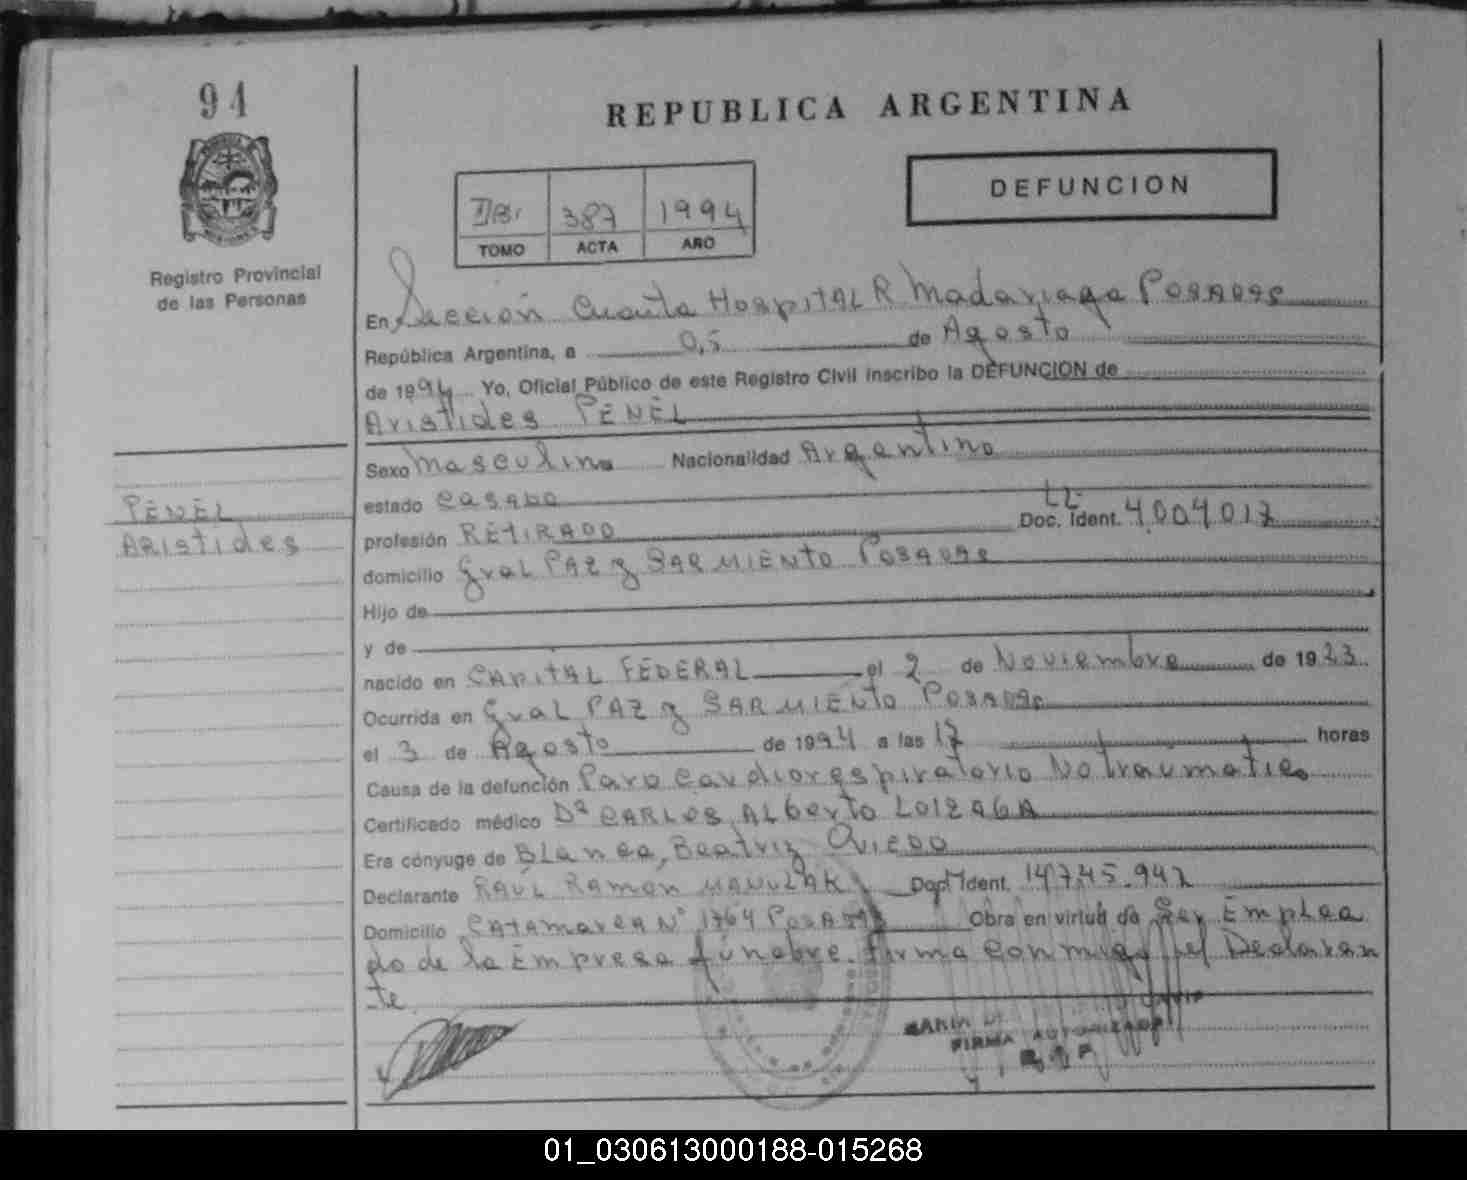 94
REPUBLICA ARGENTINA
DEFUNCION
387 1994
TOMO ACTA AÑO
Registro Provincial
de las Personas
En Sección Cuarta Hospital R Madariaga Posadas
República Argentina, a 05 de Agosto
de 1994 Yo, Oficial Público de este Registro Civil inscribo la DEFUNCION de
Aristides PENEL
Sexo Masculino Nacionalidad Argentino
estado casado
profesión RETIRADO Doc. Ident. 4.004.017
domicilio Gral PAZ y SARMIENTO Posadas
Hijo de
y de
nacido en CAPITAL FEDERAL el 2 de Noviembre de 1923
Ocurrida en Gral PAZ y SARMIENTO Posadas
el 3 de Agosto de 1994 a las 17 horas
Causa de la defunción Paro cardiorespiratorio No traumatico
Certificado médico Dr CARLOS ALberto LOIZAGA
Era cónyuge de BLanca Beatriz Oviedo
Declarante RAUL RAMON Doc. Ident. 14.745.942
Domicilio CATAMARCA N° 1764 Posadas Obra en virtud de Ser Emplea
do de la Empresa fúnebre. firma conmigo el Declaran
te
PENEL
ARIStides
FIRMA AUTORIZADA
01_030613000188-015268